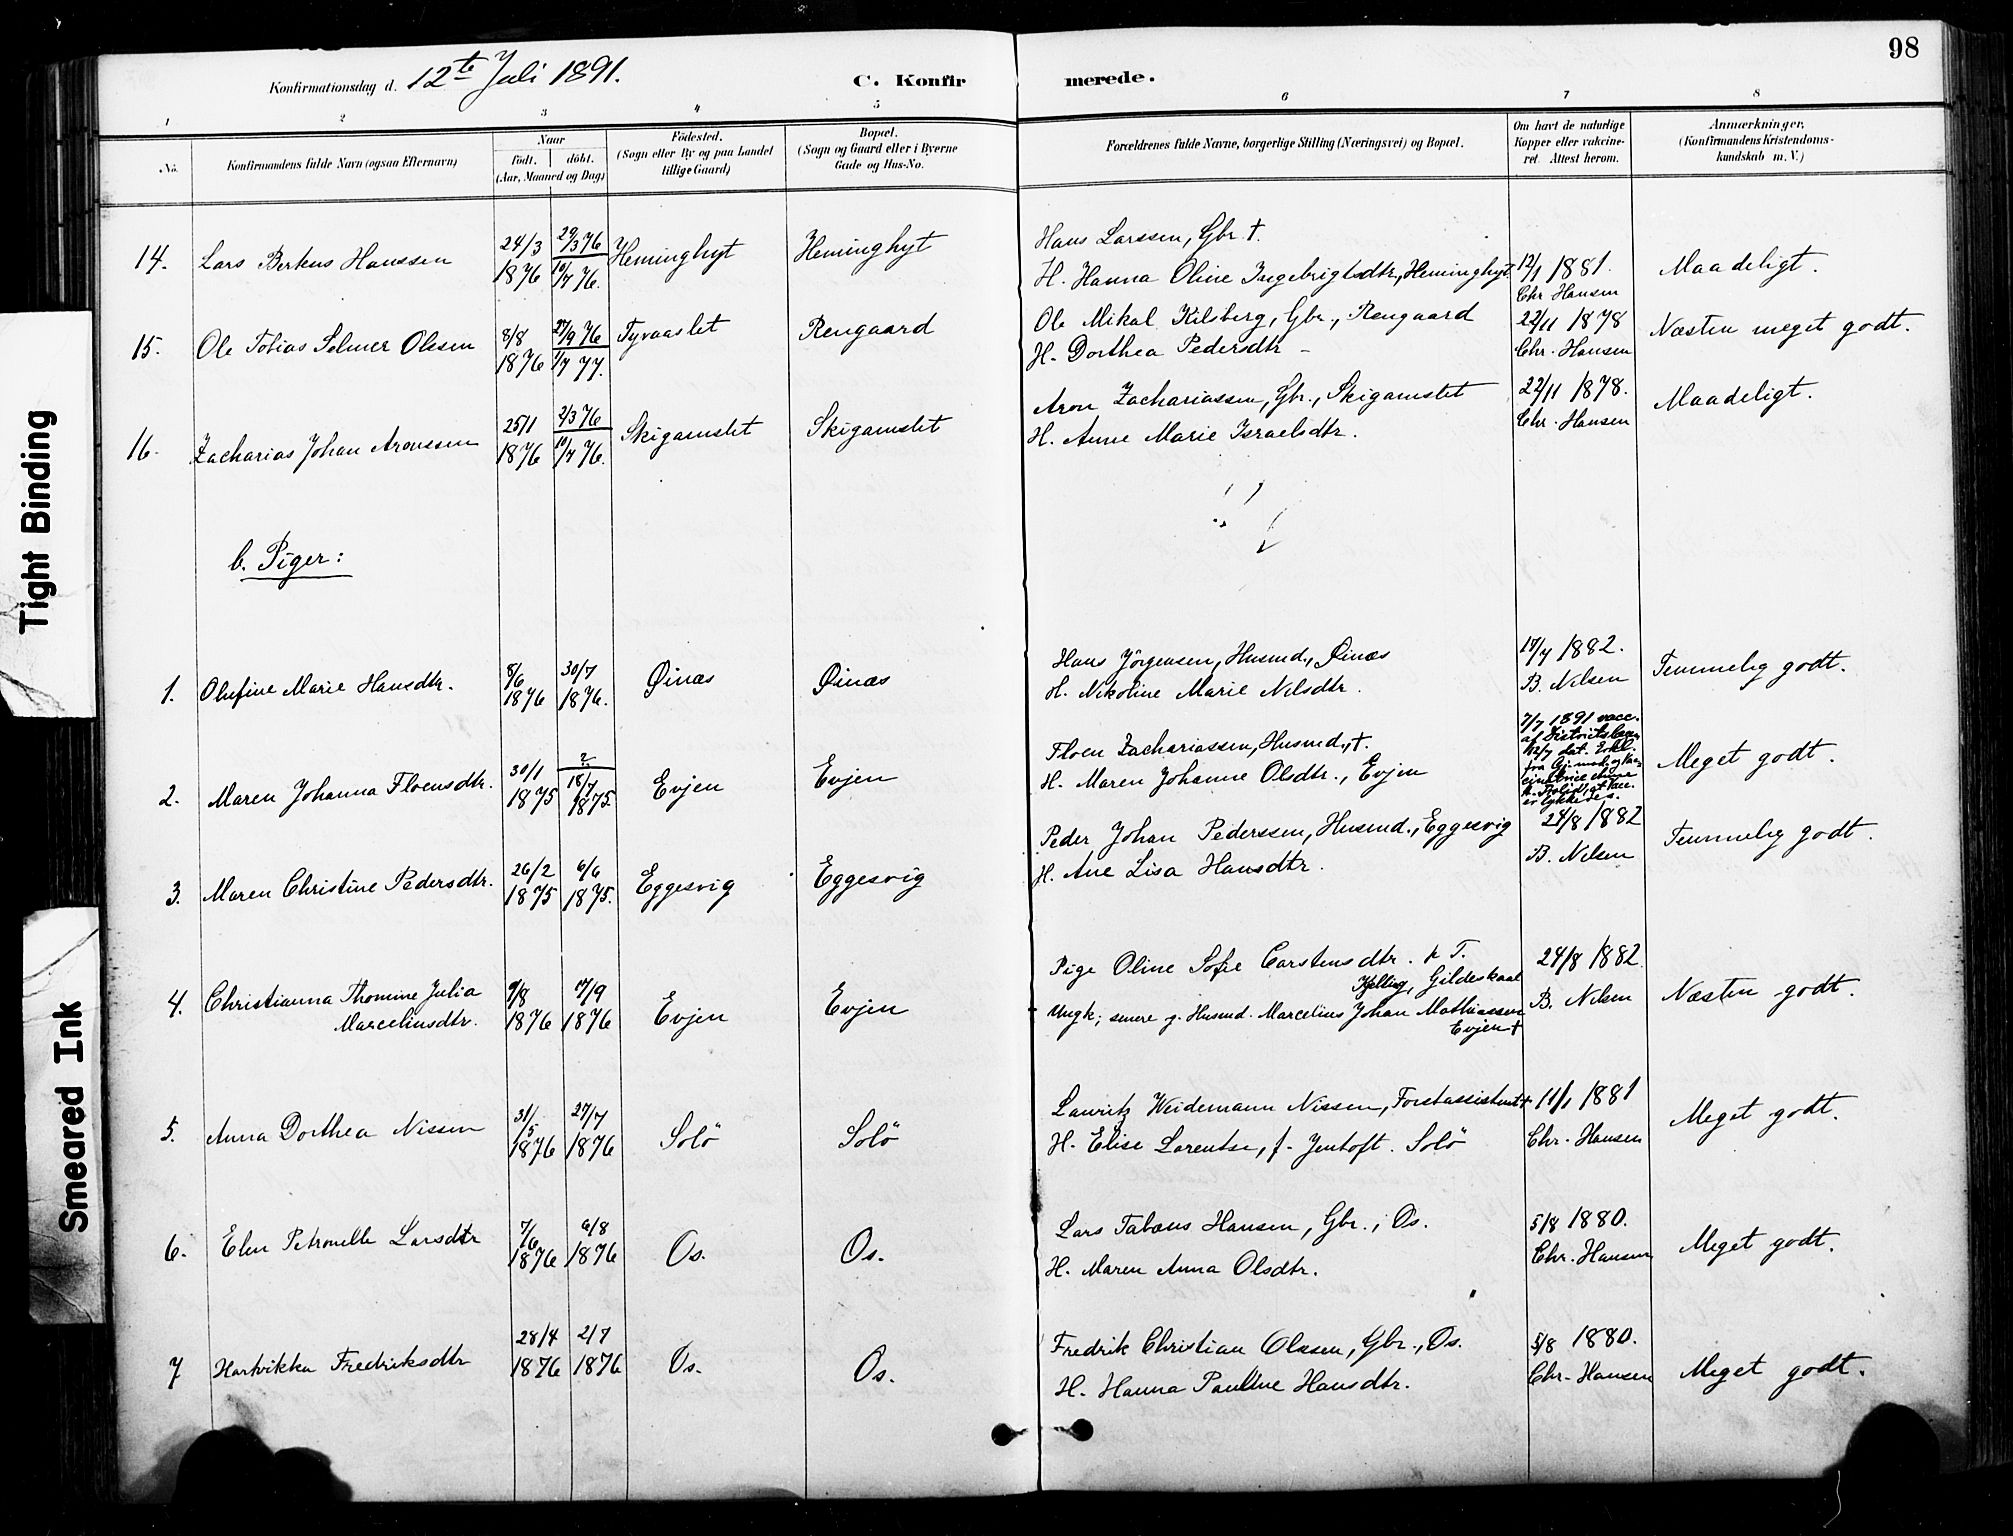 98
Konfirmationsdag d. 12te Juli 1891.
C. Konfirmerede.
1 2 3 4 5 6 7 8
No.
Konfirmandens fulde Navn (ogsaa Efternavn)
Naar
født. døbt.
(Aar, Maaned og Dag)
Fødested.
(Sogn eller By og paa Landet
tillige Gaard)
Bopæl.
(Sogn og Gaard eller i Byerne
Gade og Hus-No.
Forældrenes fulde Navne, borgerlige Stilling (Næringsvei) og Bopæl.
Om havt de naturlige
Kopper eller vakcine-
ret. Attest herom.
Anmærkninger,
(Konfirmandens Kristendoms-
kundskab m. V.)
14. Lars Berkus Hanssen 24/3 1876 29/3 76 10/7 76. Heminghyt Heminghyt
Hans Larssen, Gbr. †.
H. Hanna Oline Ingebrigtsdtr., Heminghyt
12/1 1881.
Chr Hansen
Maadeligt.
15. Ole Tobias Selmer Olesen 8/8 1876 27/9 76 1/7 77. Tyvaaslet Rengaard
Ole Mikal Kilsberg, Gbr., Rengaard
H. Dorthea Pedersdtr -
22/11 1878
Chr. Hansen
Næsten meget godt.
16. Zacharias Johan Aronssen 25/1 1876 2/3 76 10/7 76. Skigamslet Skigamslet
Aron Zachariassen, Gbr., Skigamslet
H. Anne Marie Israelsdtr.
22/11 1878.
Chr. Hansen
Maadeligt.
b. Piger:
1. Olufine Marie Hansdtr. 8/6 1876 30/7 1876. Øinæs Øinæs
Hans Jörgensen, Husmd., Øinæs
H. Nikoline Marie Nilsdtr.
17/7 1882.
B. Nilsen
Temmelig godt.
2. Maren Johanna Floensdtr. 30/1 1875 ? 18/7 1875. Evjen Evjen
Floen Zachariassen, Husmd., †.
H. Maren Johanne Olsdtr., Evjen
7/7 1891 vacc.
af Districtslæge
12/7 dat. Erkl.
fra
at Vacc.
er lykkedes.
Meget godt.
3. Maren Christine Pedersdtr. 26/2 1875 6/6 1875. Eggesvig Eggesvig
Peder Johan Pederssen, Husmd., Eggesvig
H. Ane Lisa Hansdtr.
24/8 1882
B. Nilsen
Temmelig godt.
4. Christianna Thomine Julia 9/8 1876 17/9 1876 Evjen Evjen
Marceliusdtr.
Pige Oline Sofie Carstensdtr. p. T.
Kjelling, Gildeskaal
Ungk; senere g. Husmd. Marcelius Johan Mathiassen
Evjen †
24/8 1882.
B. Nilsen
Næsten godt.
5. Anna Dorthea Nissen 31/5 1876 27/7 1876 Solö Solö
Lauritz Weidemann Nissen, Forstassistent †
H. Elise Lorentse, f. Jentoft. Solö
11/1 1881
Chr. Hansen
Meget godt.
6. Elen Petronelle Larsdtr 7/6 1876 6/8 1876 Os. Os.
Lars Tabæus Hansen, Gbr., Os.
H. Maren Anna Olsdtr.
5/8 1880.
Chr. Hansen
Meget godt.
7 Hartvikka Fredriksdtr 28/4 1876 2/7 1876 Os. Os.
Fredrik Christian Olssen, Gbr., Os.
H. Hanna Pauline Hansdtr.
5/8 1880.
Chr. Hansen
Meget godt.
Tight Binding
Smeared Ink